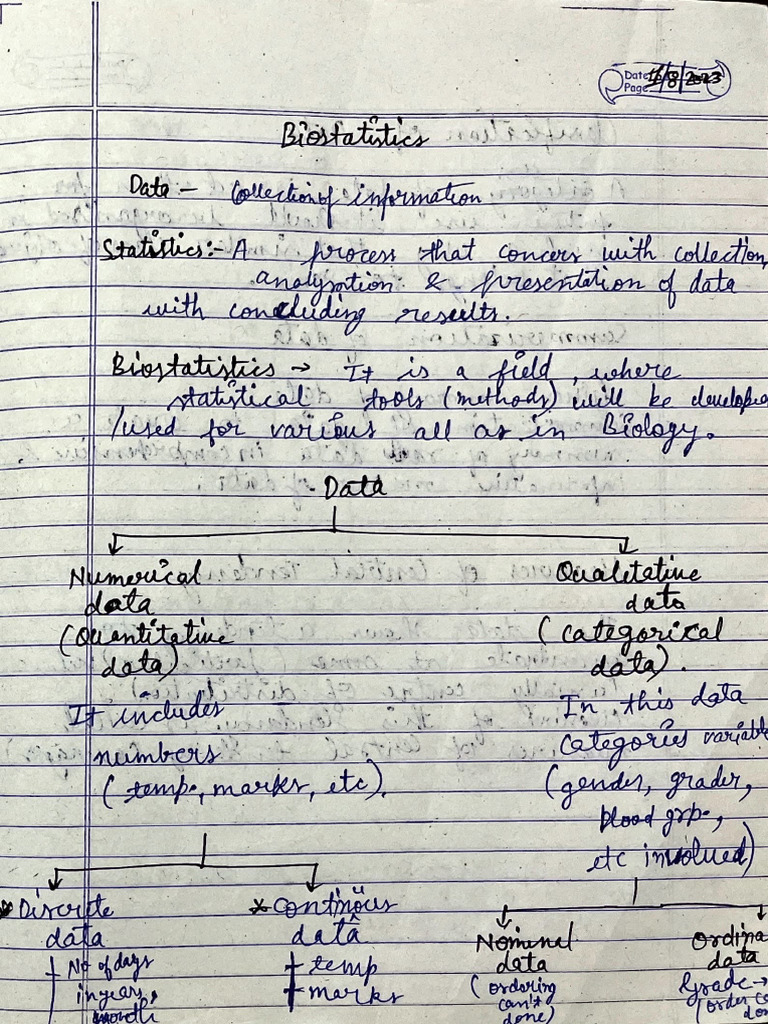 Date 1/8/2023
Page
Biostatistics
Data:- Collection of information.
Statistics:- A process that concers with collection,
analysation & presentation of data
with concluding results.
Biostatistics → It is a field, where
statistical tools (methods) will be develope
/used for various all as in Biology.
Data
Numerical data (Quantitative data)
Qualetative data (categorical data).
It includes numbers (temp., marks, etc).
In this data categories variable (gender, grader, blood grp., etc involved)
* Discrete data
* Continuous data
Nominal data
Ordina data
No of days in years, month
temp
marks
(ordering can't done)
Grade→
(order c
don